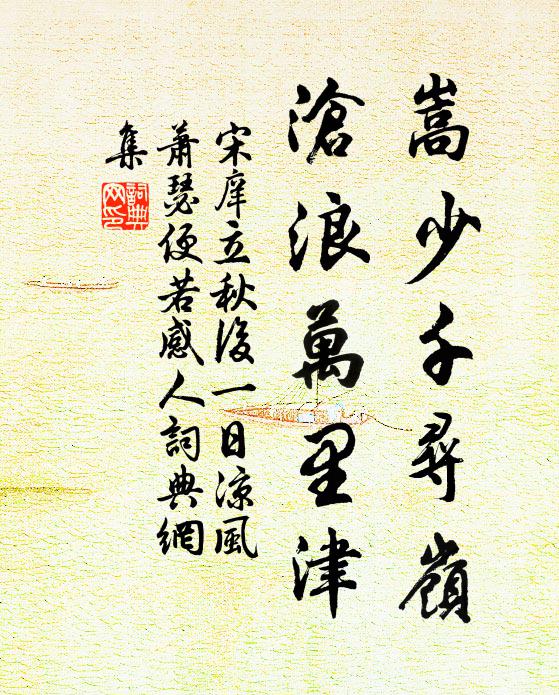 嵩少千尋嶺
滄浪萬里津
宋庠立秋後一日涼風
蕭瑟便若感人詞典網
集
詞典
网印